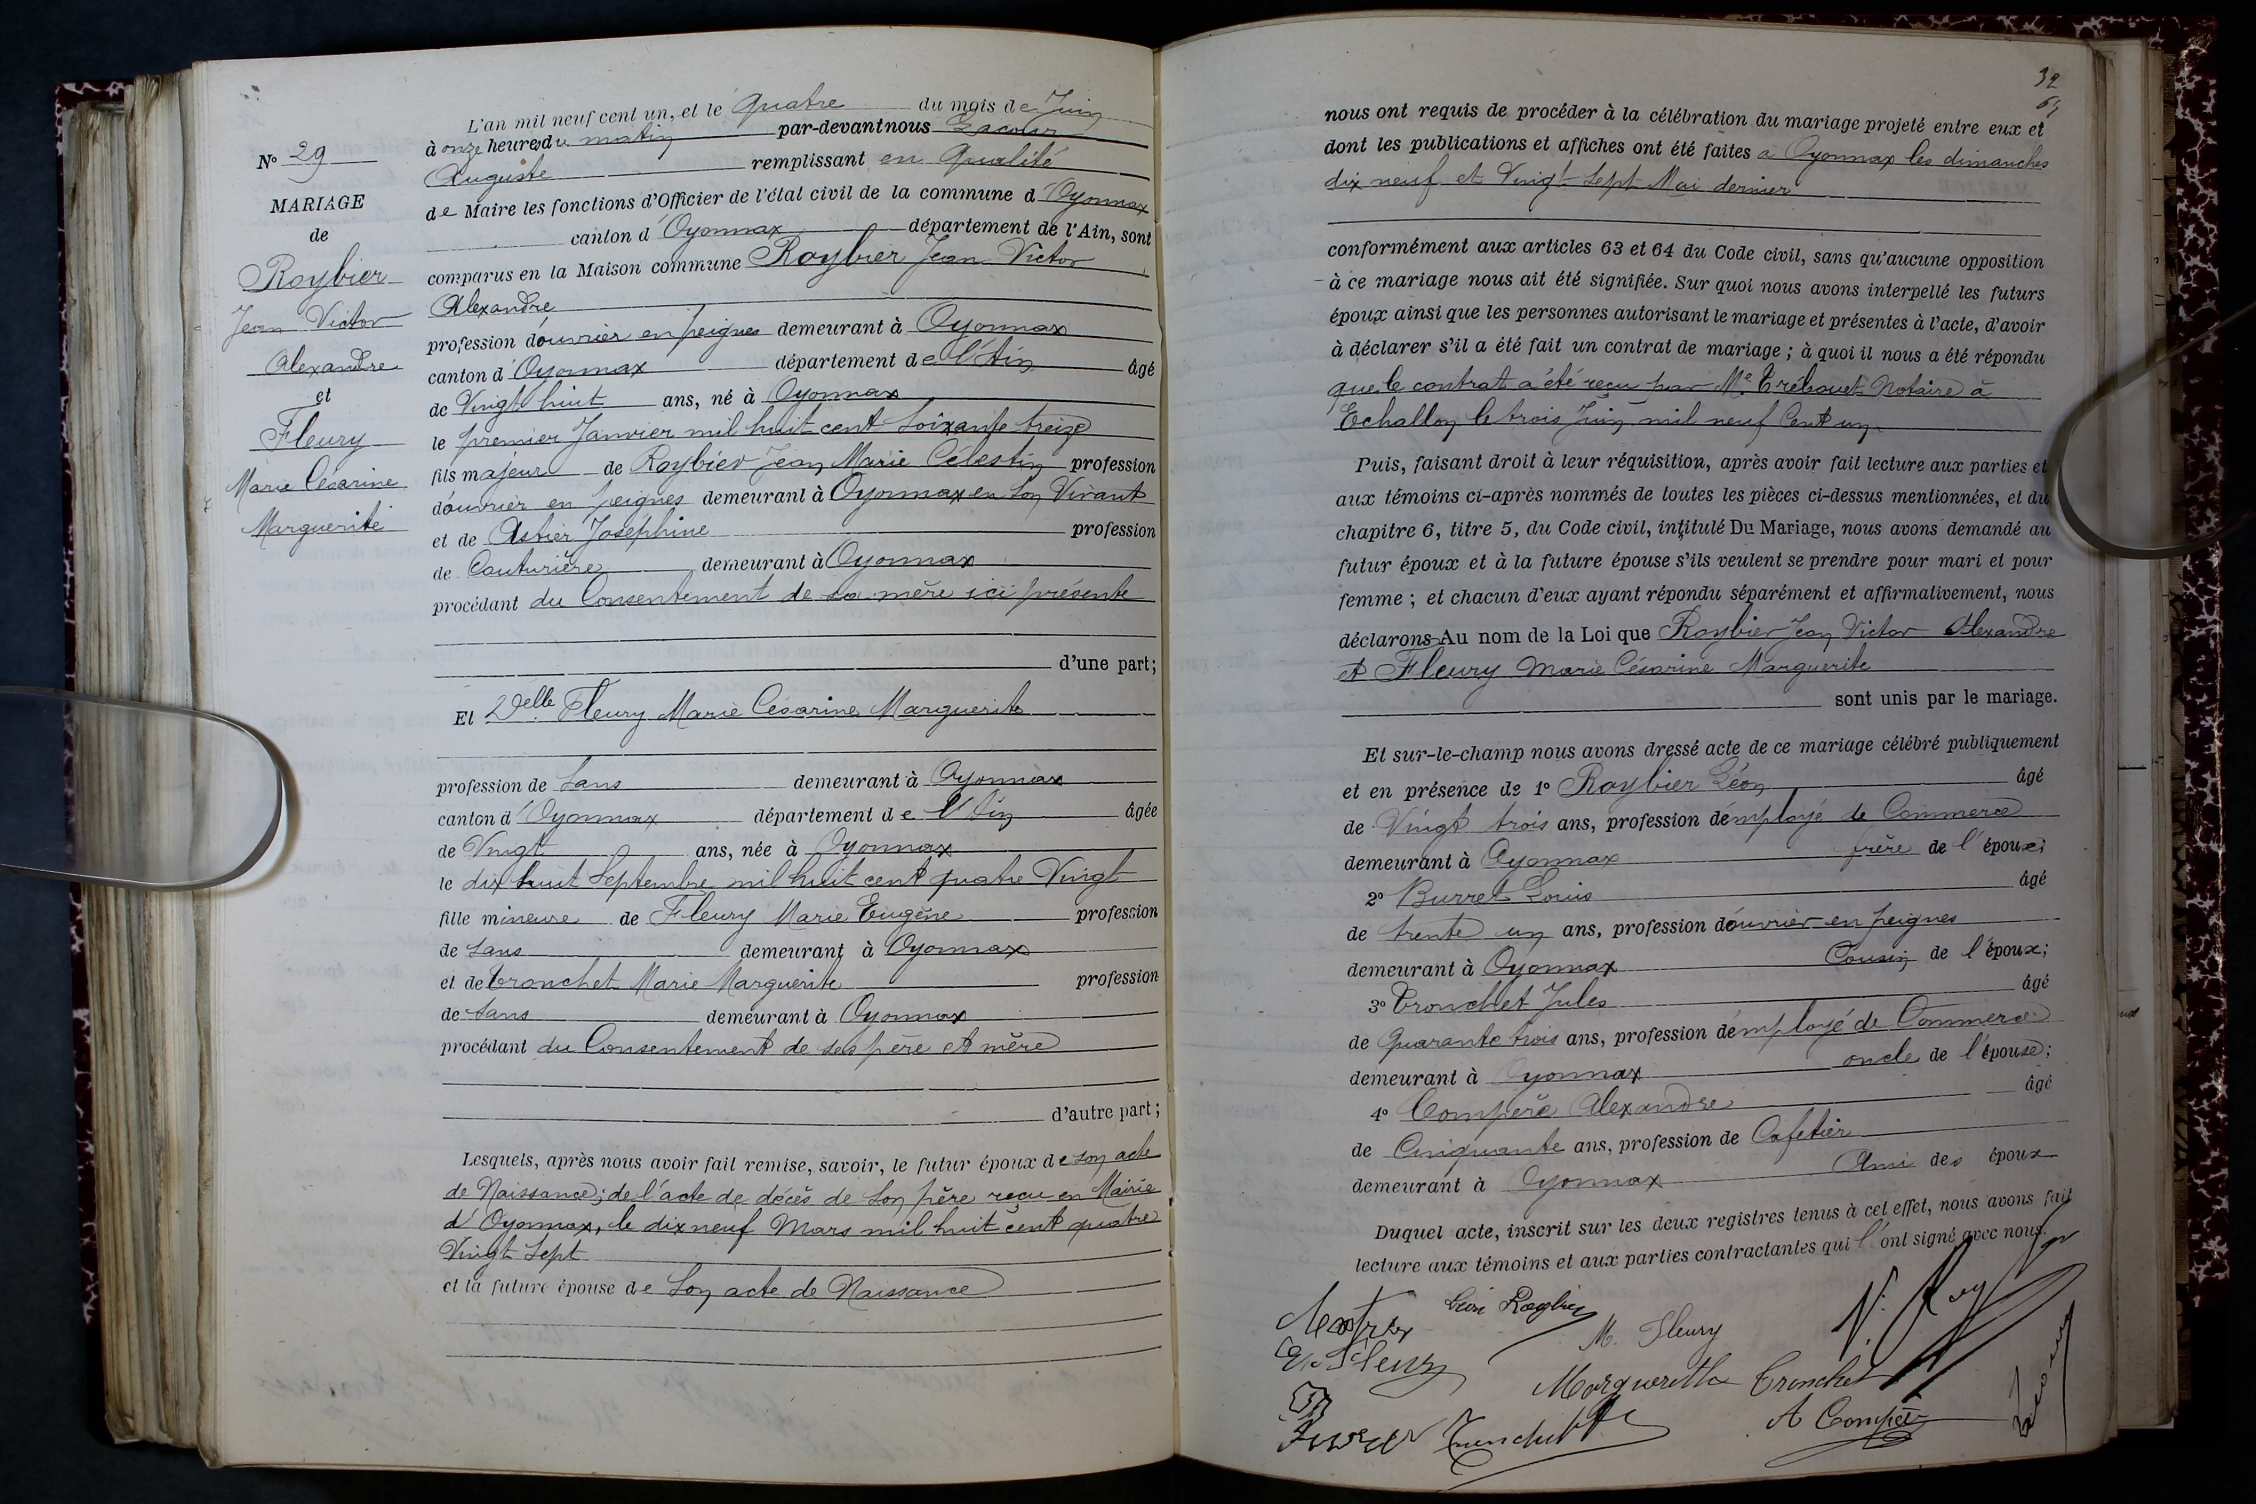 L'an mil neuf cent un, et le Quatre du mois de Juin
à onze heures du matin par-devant nous Lacour
Auguste remplissant en Qualité
de Maire les fonctions d'Officier de l'état civil de la commune d'Oyonnax
canton d'Oyonnax département de l'Ain, sont
comparus en la Maison commune Roybier Jean Victor
Alexandre
profession d'ouvrier en peignes demeurant à Oyonnax
canton d'Oyonnax département de l'Ain âgé
de Vingt huit ans, né à Oyonnax
le premier Janvier mil huit cent soixante treize
fils majeur de Roybier Jean Marie Célestin profession
d'ouvrier en peignes demeurant à Oyonnax en son Vivant
et de Astier Joséphine profession
de Couturière demeurant à Oyonnax
procédant du Consentement de sa mère ici présente
d'une part;
Et Delle Fleury Marie Césarine Marguerite
profession de sans demeurant à Oyonnax
canton d'Oyonnax département de l'Ain âgée
de Vingt ans, née à Oyonnax
le dix huit Septembre mil huit cent quatre Vingt
fille mineure de Fleury Marie Eugène profession
de sans demeurant à Oyonnax
et de Tronchet Marie Marguerite profession
de sans demeurant à Oyonnax
procédant du Consentement de ses père et mère
d'autre part;
Lesquels, après nous avoir fait remise, savoir, le futur époux de son acte
de Naissance; de l'acte de décès de son père reçu en Mairie
d'Oyonnax, le dix neuf Mars mil huit cent quatre
Vingt sept
et la future épouse de son acte de Naissance
No 29
MARIAGE
de
Roybier
Jean Victor
Alexandre
et
Fleury
Marie Césarine
Marguerite
32
nous ont requis de procéder à la célébration du mariage projeté entre eux et
dont les publications et affiches ont été faites a Oyonnax les dimanches
dix neuf et Vingt sept Mai dernier
conformément aux articles 63 et 64 du Code civil, sans qu'aucune opposition
à ce mariage nous ait été signifiée. Sur quoi nous avons interpellé les futurs
époux ainsi que les personnes autorisant le mariage et présentes à l'acte, d'avoir
à déclarer s'il a été fait un contrat de mariage; à quoi il nous a été répondu
que le contrat a été reçu par Me Notaire à
Echallon le trois Juin mil neuf Cent un
Puis, faisant droit à leur réquisition, après avoir fait lecture aux parties et
aux témoins ci-après nommés de toutes les pièces ci-dessus mentionnées, et du
chapitre 6, titre 5, du Code civil, intitulé Du Mariage, nous avons demandé au
futur époux et à la future épouse s'ils veulent se prendre pour mari et pour
femme; et chacun d'eux ayant répondu séparément et affirmativement, nous
déclarons Au nom de la Loi que Roybier Jean Victor Alexandre
et Fleury Marie Césarine Marguerite
sont unis par le mariage.
Et sur-le-champ nous avons dressé acte de ce mariage célébré publiquement
et en présence de 1o Roybier Léon âgé
de Vingt trois ans, profession d'employé de Commerce
demeurant à Oyonnax frère de l'époux;
2o Burret Louis âgé
de trente un ans, profession d'ouvrier en peignes
demeurant à Oyonnax Cousin de l'époux;
3o Tronchet Jules âgé
de Quarante trois ans, profession d'employé de Commerce
demeurant à Oyonnax oncle de l'épouse;
4o Compère Alexandre âgé
de Cinquante ans, profession de Cafetier
demeurant à Oyonnax Ami des époux
Duquel acte, inscrit sur les deux registres tenus à cet effet, nous avons fait
lecture aux témoins et aux parties contractantes qui l'ont signé avec nous.
Roybier
M. Fleury
Fleury
Tronchet
Tronchet
A Compère
Lacour